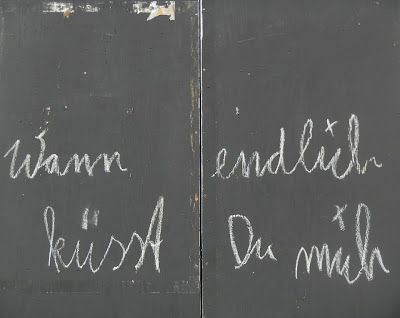 wann endlich
küsst Du mich